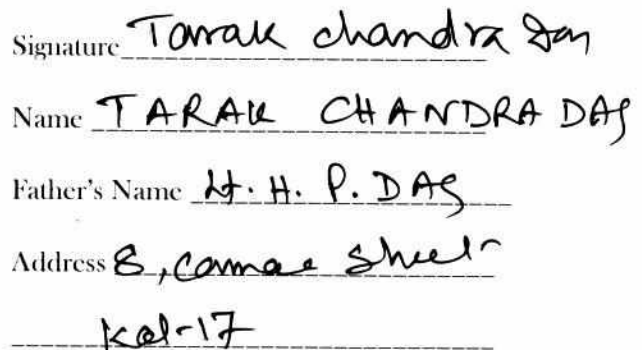 Signature Tarak chandra Das
Name TARAK CHANDRA DAS
Father's Name Lt. H. P. DAS
Address 8, Camac Street
Kol-17